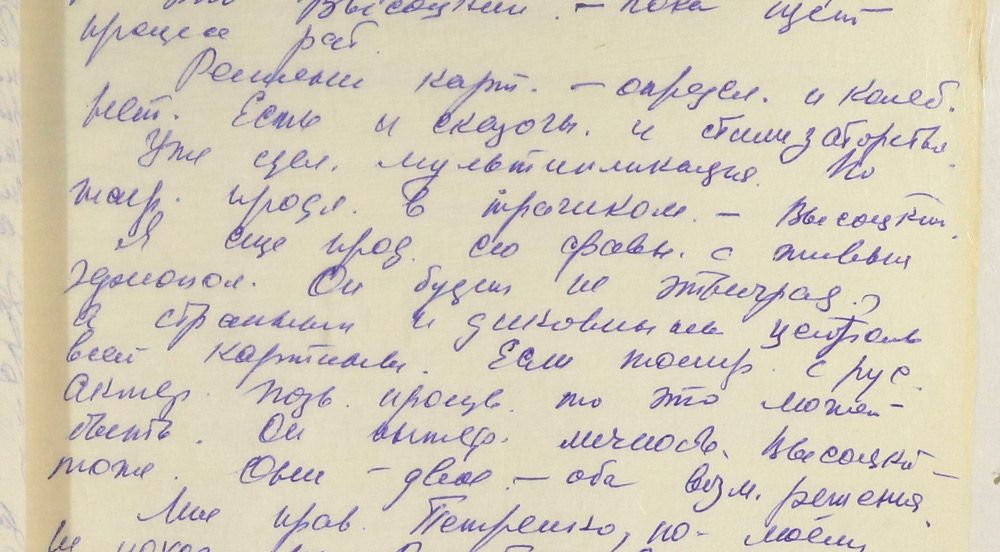 Высоцкий. – пока идет
процесс раб.
Решение карт. – определ. и колеб.
нет. Есть и сказочн. и стилизаторство.
Уже сдел. мультипликация. Но
жанр. продл. в трагиком. – Высоцкий.
Я еще прод. его сравн. с живым
эфиопом. Он будет не этнограф.,
а странным и диковинным центром
всей картины. Если жанр. с рус.
актер. позв. произв. то это может
быть. Он интер. личность. Высоцкий –
тоже. Они – двое – оба возм. решения.
Мне нрав. Петренко, по-моему